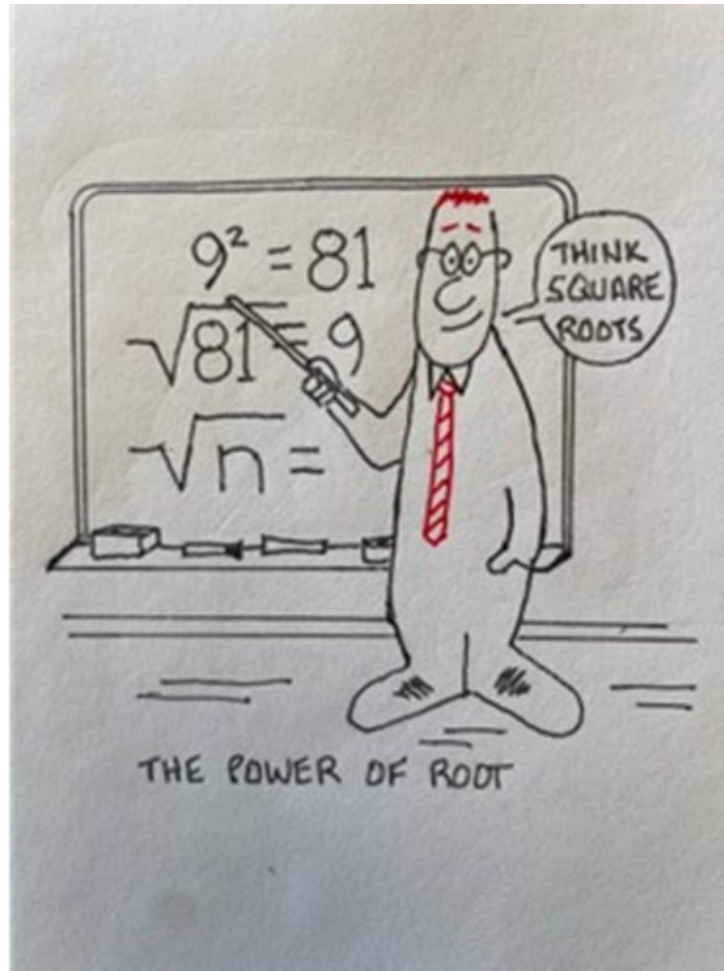 9² = 81
√81 = 9
√n =
THINK
SQUARE
ROOTS
THE POWER OF ROOT